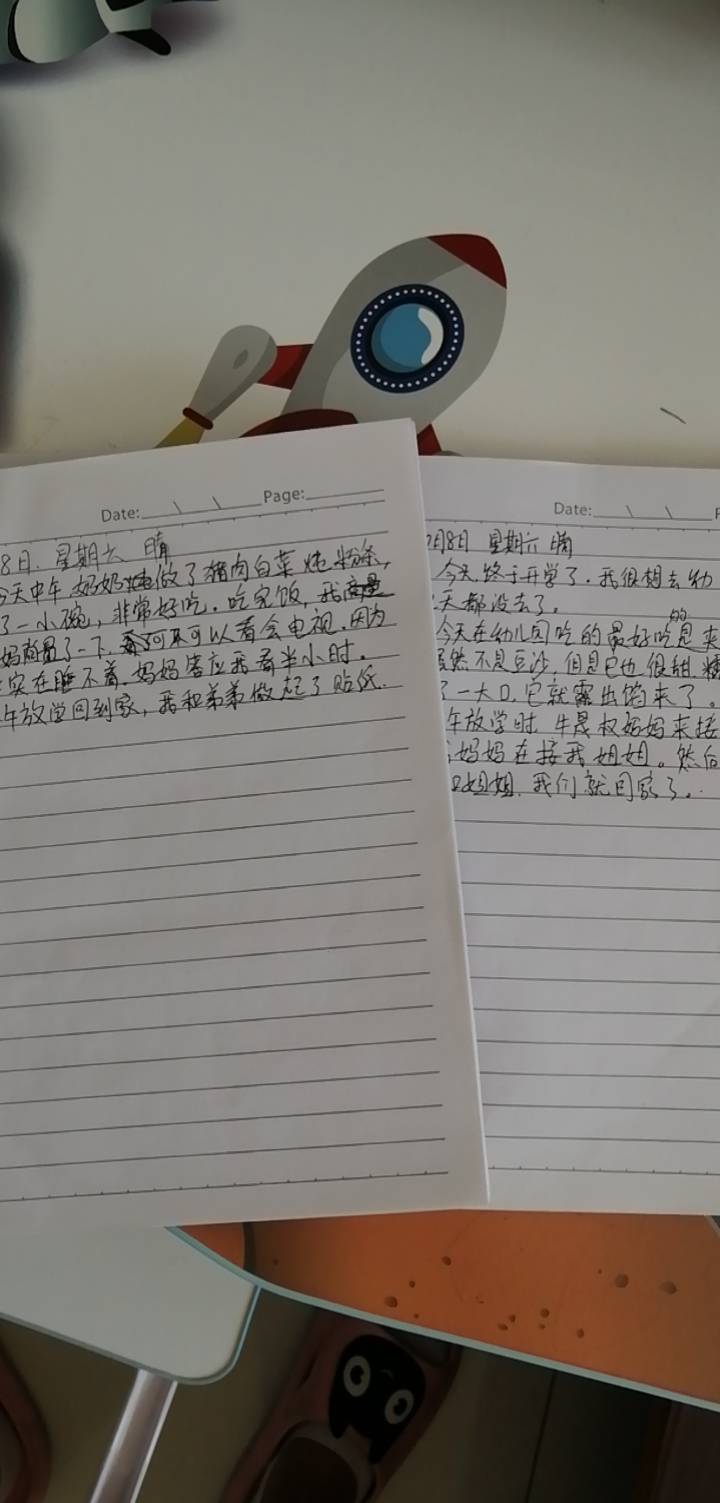 Date: Page:
8日. 星期六 晴
今天中午妈妈做了猪肉白菜炖粉条,
了一小碗, 非常好吃. 吃完饭, 我
妈商量了一下, 可不可以看会电视. 因为
实在睡不着. 妈妈答应我看半小时.
午放学回到家, 我和弟弟做起了贴纸.
Date:
2月8日 星期六 晴
今天终于开学了. 我很想去幼
天都没去了.
的
今天在幼儿园吃的最好吃是夹
虽然不是豆沙, 但是它也很甜.
了一大口, 它就露出馅来了。
午放学时, 牛晟权妈妈来接
妈妈在接我姐姐。然后
姐姐, 我们就回家了。